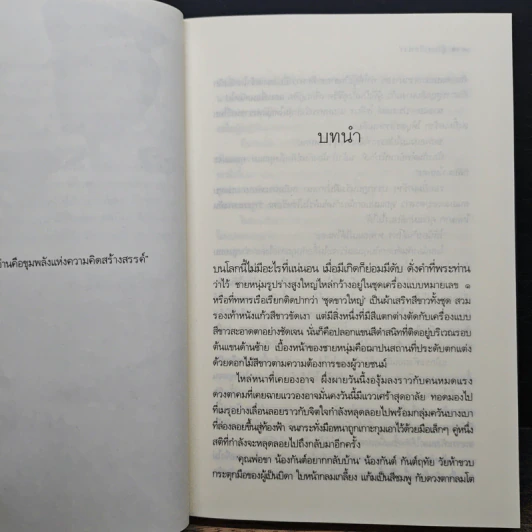 านคือขุมพลังแห่งความคิดสร้างสรรค์"
บทนำ
บนโลกนี้ไม่มีอะไรที่แน่นอน เมื่อมีเกิดก็ย่อมมีดับ ดั่งคำที่พระท่าน
ว่าไว้ ชายหนุ่มรูปร่างสูงใหญ่ไหล่กว้างอยู่ในชุดเครื่องแบบหมายเลข ๑
หรือที่ทหารเรือเรียกติดปากว่า 'ชุดขาวใหญ่' เป็นผ้าเสริทสีขาวทั้งชุด สวม
รองเท้าหนังแก้วสีขาวขัดเงา แต่มีสิ่งหนึ่งที่มีสีแตกต่างตัดกับเครื่องแบบ
สีขาวสะอาดตาอย่างชัดเจน นั่นก็คือปลอกแขนสีดำสนิทที่ติดอยู่บริเวณรอบ
ต้นแขนด้านซ้าย เบื้องหน้าของชายหนุ่มคือฌาปนสถานที่ประดับตกแต่ง
ด้วยดอกไม้สีขาวตามความต้องการของผู้วายชนม์
ไหล่หนาที่เคยองอาจ ผึ่งผายวันนี้งองุ้มลงราวกับคนหมดแรง
ดวงตาคมที่เคยฉายแววองอาจมั่นคงวันนี้มีแววเศร้าสุดอาลัย ทอดมองไป
ที่เมรุอย่างเลื่อนลอยราวกับจิตใจกำลังหลุดลอยไปพร้อมกลุ่มควันบางเบา
ที่ล่องลอยขึ้นสู่ท้องฟ้า จนกระทั่งมือหนาถูกเกาะกุมเอาไว้ด้วยมือเล็กๆ คู่หนึ่ง
สติที่กำลังจะหลุดลอยไปถึงกลับมาอีกครั้ง
'คุณพ่อขา น้องกันต์อยากกลับบ้าน' น้องกันต์ กันต์ฤทัย วัยห้าขวบ
กระตุกมือของผู้เป็นบิดา ใบหน้ากลมเกลี้ยง แก้มเป็นสีชมพู กับดวงตากลมโต